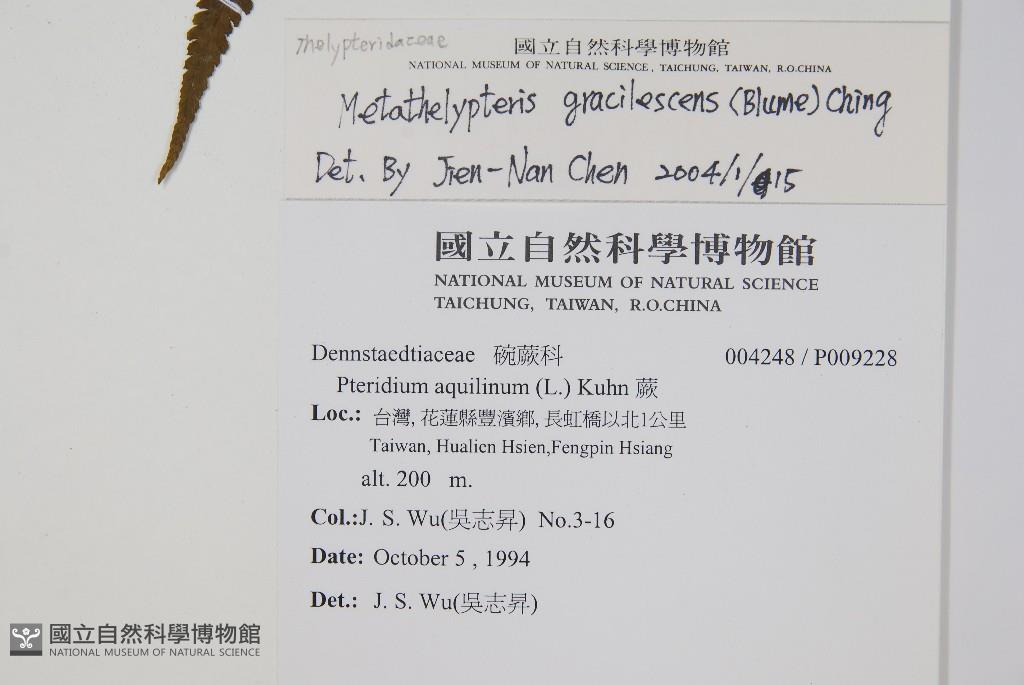 Thelypteridaceae
國立自然科學博物館
NATIONAL MUSEUM OF NATURAL SCIENCE, TAICHUNG, TAIWAN, R.O.CHINA
Metathelypteris gracilescens (Blume) Ching
Det. By Jien-Nan Chen 2004/1/15
國立自然科學博物館
NATIONAL MUSEUM OF NATURAL SCIENCE
TAICHUNG, TAIWAN, R.O.CHINA
Dennstaedtiaceae 碗蕨科 004248 / P009228
Pteridium aquilinum (L.) Kuhn 蕨
Loc.: 台灣, 花蓮縣豐濱鄉, 長虹橋以北1公里
Taiwan, Hualien Hsien,Fengpin Hsiang
alt. 200 m.
Col.:J. S. Wu(吳志昇) No.3-16
Date: October 5 , 1994
Det.: J. S. Wu(吳志昇)
國立自然科學博物館
NATIONAL MUSEUM OF NATURAL SCIENCE